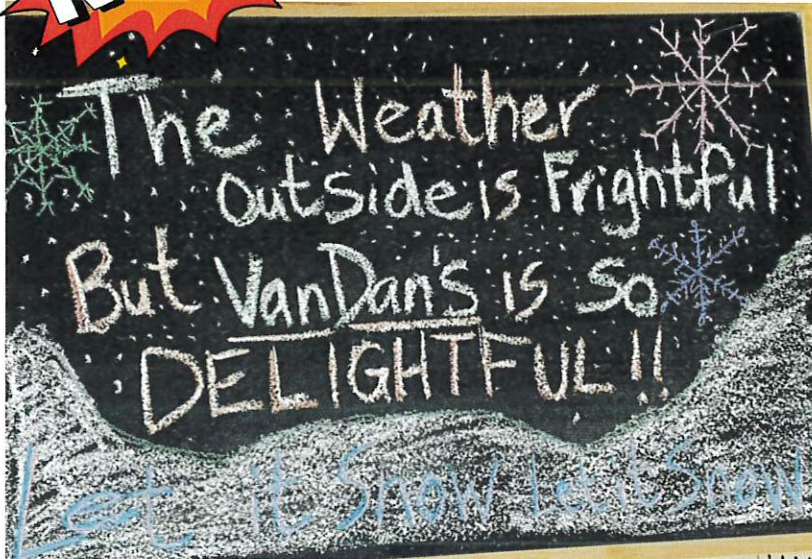 The Weather
outside is Frightful
But VanDan's is So
DELIGHTFUL!!
Let it Snow Let it Snow